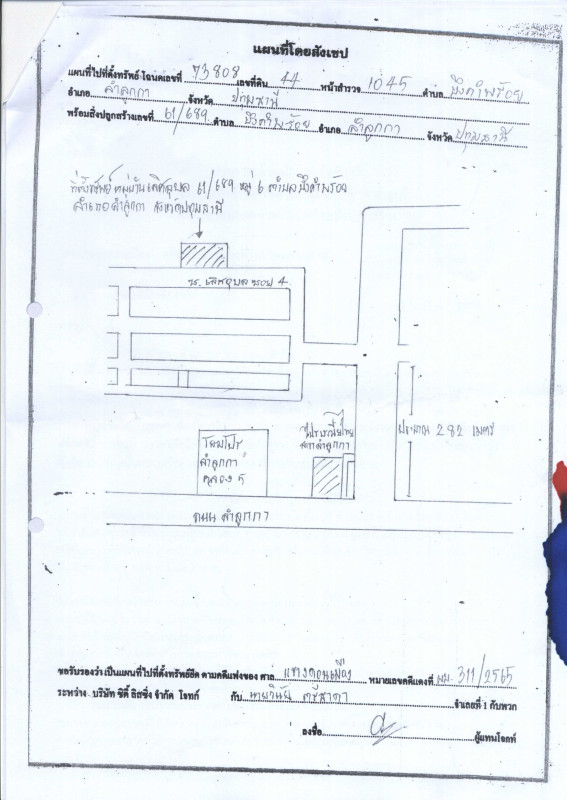 แผนที่โดยสังเขป
แผนที่ไปที่ตั้งทรัพย์ โฉนดเลขที่ 73808 เลขที่ดิน 44 หน้าสำรวจ 1045 ตำบล บึงคำพร้อย
อำเภอ ลำลูกกา จังหวัด ปทุมธานี
พร้อมสิ่งปลูกสร้างเลขที่ 61/689 ตำบล บึงคำพร้อย อำเภอ ลำลูกกา จังหวัด ปทุมธานี
ที่ตั้งทรัพย์ หมู่บ้านเลิศอุบล 61/689 หมู่ 6 ตำบลบึงคำพร้อย
อำเภอลำลูกกา จังหวัดปทุมธานี
ซ. เลิศอุบล ซอย 4
ไปรษณีย์ไทย
สาขาลำลูกกา
ประมาณ 282 เมตร
โฮมโปร
ลำลูกกา
คลอง 5
ถนน ลำลูกกา
ขอรับรองว่า เป็นแผนที่ไปที่ตั้งทรัพย์ยึด ตามคดีแพ่งของ ศาล แขวงดอนเมือง หมายเลขคดีแดงที่ ผบ. 311/2565
ระหว่าง บริษัท ซิตี้ ลิสซิ่ง จำกัด โจทก์ กับ นายวินัย ศรีสาดา จำเลยที่ 1 กับพวก
ลงชื่อ ผู้แทนโจทก์